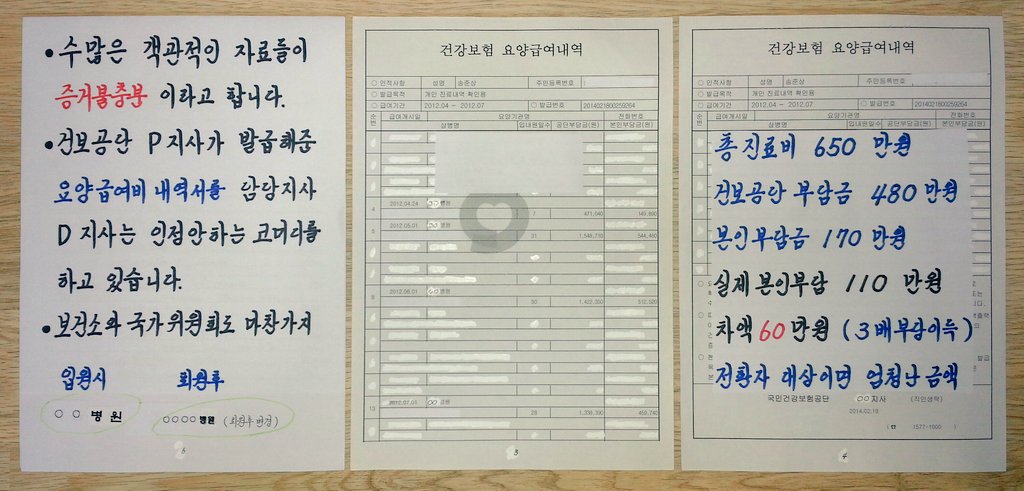 • 수 많은 객관적인 자료들이
증거불충분 이라고 합니다.
• 건보공단 P 지사가 발급해준
요양급여비 내역서를 담당지사
D 지사는 인정안하는 코메디를
하고 있습니다.
• 보건소와 국가위원회도 마찬가지
입원시 퇴원후
○ ○ 병원 ○○○○ 병원 (퇴원후 변경)
건강보험 요양급여내역
○ 인적사항 성명 송준상 주민등록번호
○ 발급목적 개인 진료내역 확인용
○ 급여기간 2012.04 - 2012.07 ○ 발급번호 2014021800259264
순번 급여개시일 요양기관명 전화번호
상병명 입내원일수 공단부담금(원) 본인부담금(원)
4 2012.04.24 ○○병원
7 471,040 149,890
5 2012.05.01 ○○병원
31 1,548,710 544,460
8 2012.06.01 ○○병원
30 1,422,350 512,520
13 2012.07.01 ○○병원
28 1,338,390 459,740
3
건강보험 요양급여내역
○ 인적사항 성명 송준상 주민등록번호
○ 발급목적 개인 진료내역 확인용
○ 급여기간 2012.04 - 2012.07 ○ 발급번호 2014021800259264
순번 급여개시일 요양기관명 전화번호
상병명 입내원일수 공단부담금(원) 본인부담금(원)
총 진료비 650 만원
건보공단 부담금 480 만원
본인부담금 170 만원
실제 본인부담 110 만원
차액 60 만원 ( 3 배부당이득 )
전환자 대상이면 엄청난 금액
국민건강보험공단 ○○지사 (직인생략)
2014.02.18
( ☎ 1577-1000 )
4